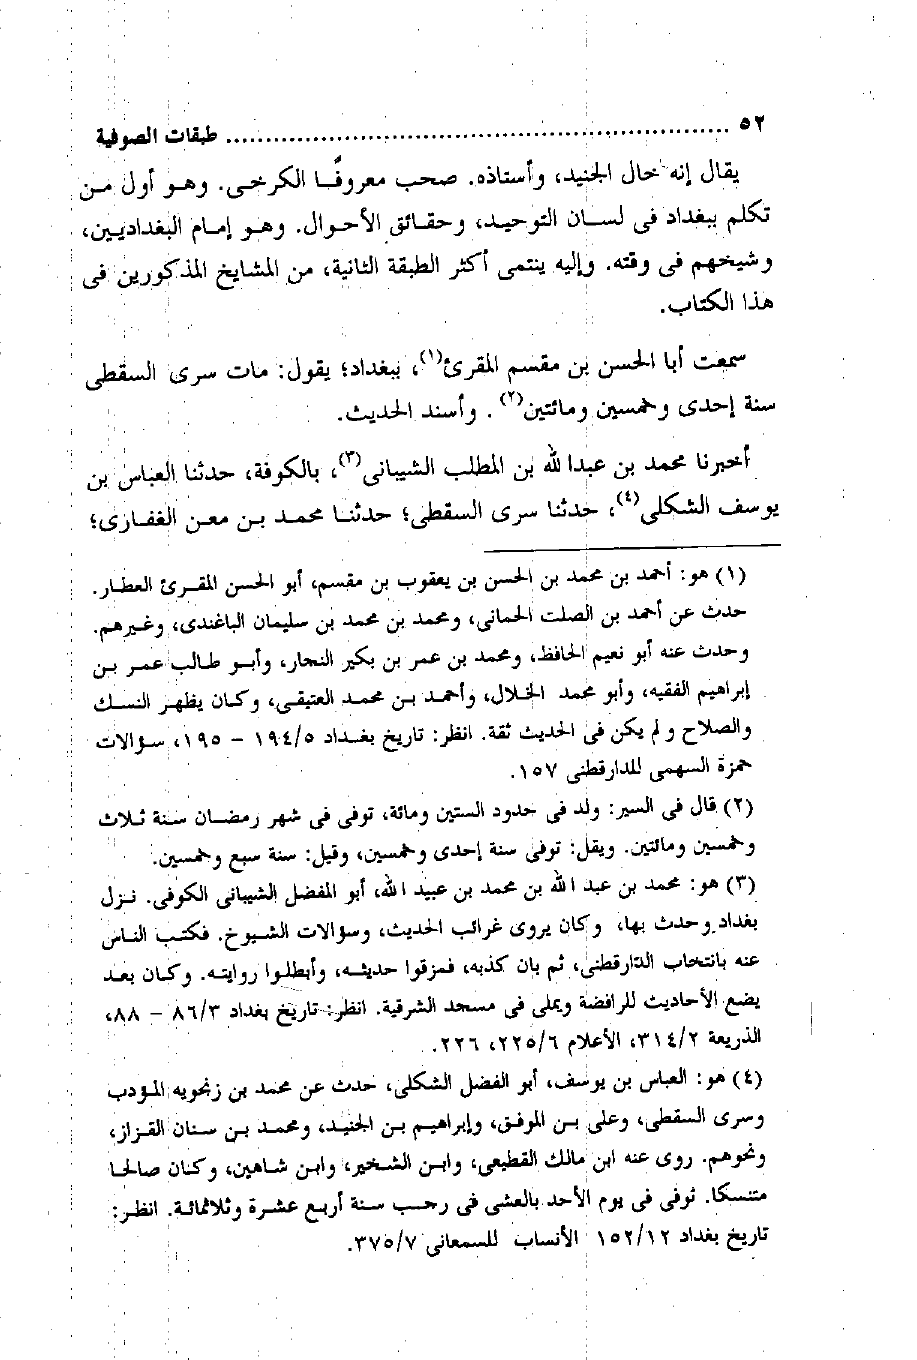 ٥٢ ........................................................ طبقات الصوفية
يقال إنه خال الجنيد، وأستاذه. صحب معروفًا الكرخى. وهو أول من
تكلم ببغداد فى لسان التوحيد، وحقائق الأحوال. وهو إمام البغداديين،
وشيخهم فى وقته. وإليه ينتمى أكثر الطبقة الثانية، من المشايخ المذكورين فى
هذا الكتاب.
سمعت أبا الحسن بن مقسم المقرئ(١)، ببغداد؛ يقول: مات سرى السقطى
سنة إحدى وخمسين ومائتين(٢). وأسند الحديث.
أخبرنا محمد بن عبدا لله بن المطلب الشيبانى(٣)، بالكوفة، حدثنا العباس بن
يوسف الشكلى(٤)، حدثنا سرى السقطى؛ حدثنا محمد بن معن الغفارى؛
(١) هو: أحمد بن محمد بن الحسن بن يعقوب بن مقسم، أبو الحسن المقرئ العطار.
حدث عن أحمد بن الصلت الحمانى، ومحمد بن محمد بن سليمان الباغندى، وغيرهم.
وحدث عنه أبو نعيم الحافظ، ومحمد بن عمر بن بكير النجار، وأبو طالب عمر بن
إبراهيم الفقيه، وأبو محمد الخلال، وأحمد بن محمد العتيقى، وكان يظهر النسك
والصلاح ولم يكن فى الحديث ثقة. انظر: تاريخ بغداد ١٩٤/٥ - ١٩٥، سؤالات
حمزة السهمى للدارقطنى ١٥٧.
(٢) قال فى السير: ولد فى حدود الستين ومائة، توفى فى شهر رمضان سنة ثلاث
وخمسين ومائتين. ويقل: توفى سنة إحدى وخمسين، وقيل: سنة سبع وخمسين.
(٣) هو: محمد بن عبد الله بن محمد بن عبيد الله، أبو المفضل الشيبانى الكوفى. نزل
بغداد وحدث بها، وكان يروى غرائب الحديث، وسؤالات الشيوخ. فكتب الناس
عنه بانتخاب الدارقطنى، ثم بان كذبه، فمزقوا حديثه، وأبطلوا روايته. وكان بعد
يضع الأحاديث للرافضة ويملى فى مسجد الشرقية. انظر: تاريخ بغداد ٨٦/٣ - ٨٨،
الذريعة ٣١٤/٢، الأعلام ٢٢٥/٦، ٢٢٦.
(٤) هو: العباس بن يوسف، أبو الفضل الشكلى، حدث عن محمد بن زنجويه المؤدب
وسرى السقطى، وعلى بن الموفق، وإبراهيم بن الجنيد، ومحمد بن سنان القزاز،
ونحوهم. روى عنه ابن مالك القطيعى، وابن الشخير، وابن شاهين، وكان صالحا
متنسكا. توفى فى يوم الأحد بالعشى فى رجب سنة أربع عشرة وثلاثمائة. انظر:
تاريخ بغداد ١٥٢/١٢ الأنساب للسمعانى ٣٧٥/٧.